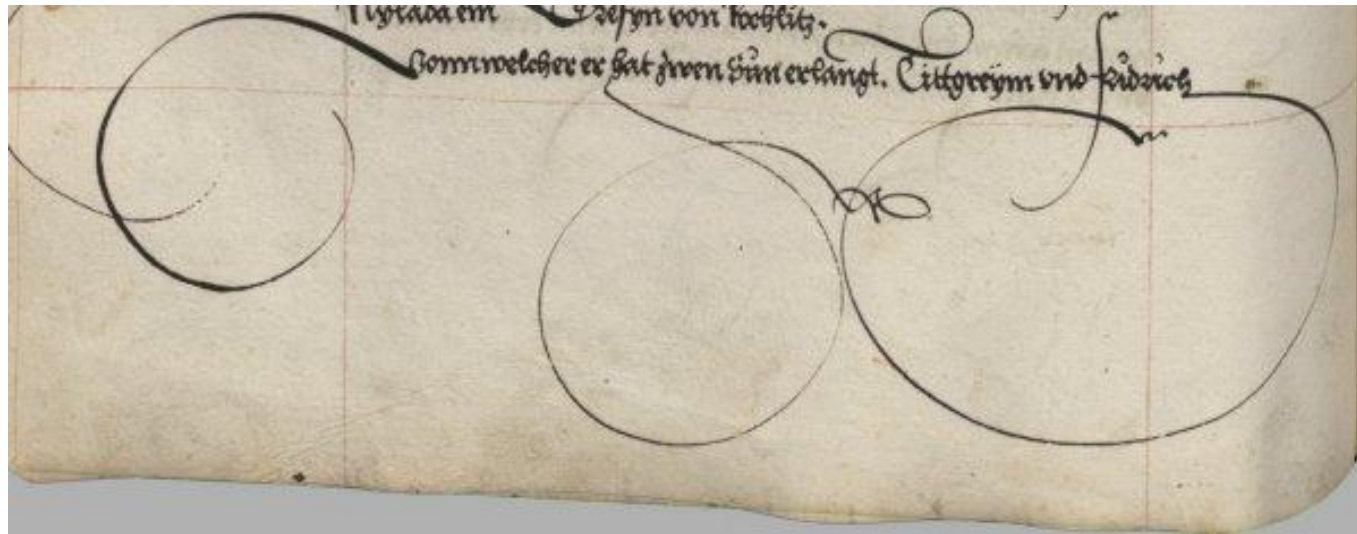 ein Grefyn von Rochlitz.
Vonn welcher er hat zwen Sün erlangt. Dittgreym vnd Fridrich